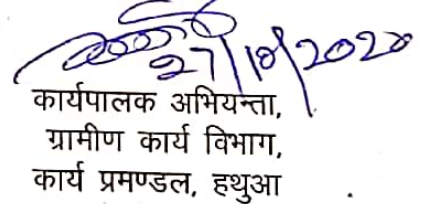 27/10/2020
कार्यपालक अभियन्ता,
ग्रामीण कार्य विभाग,
कार्य प्रमण्डल, हथुआ